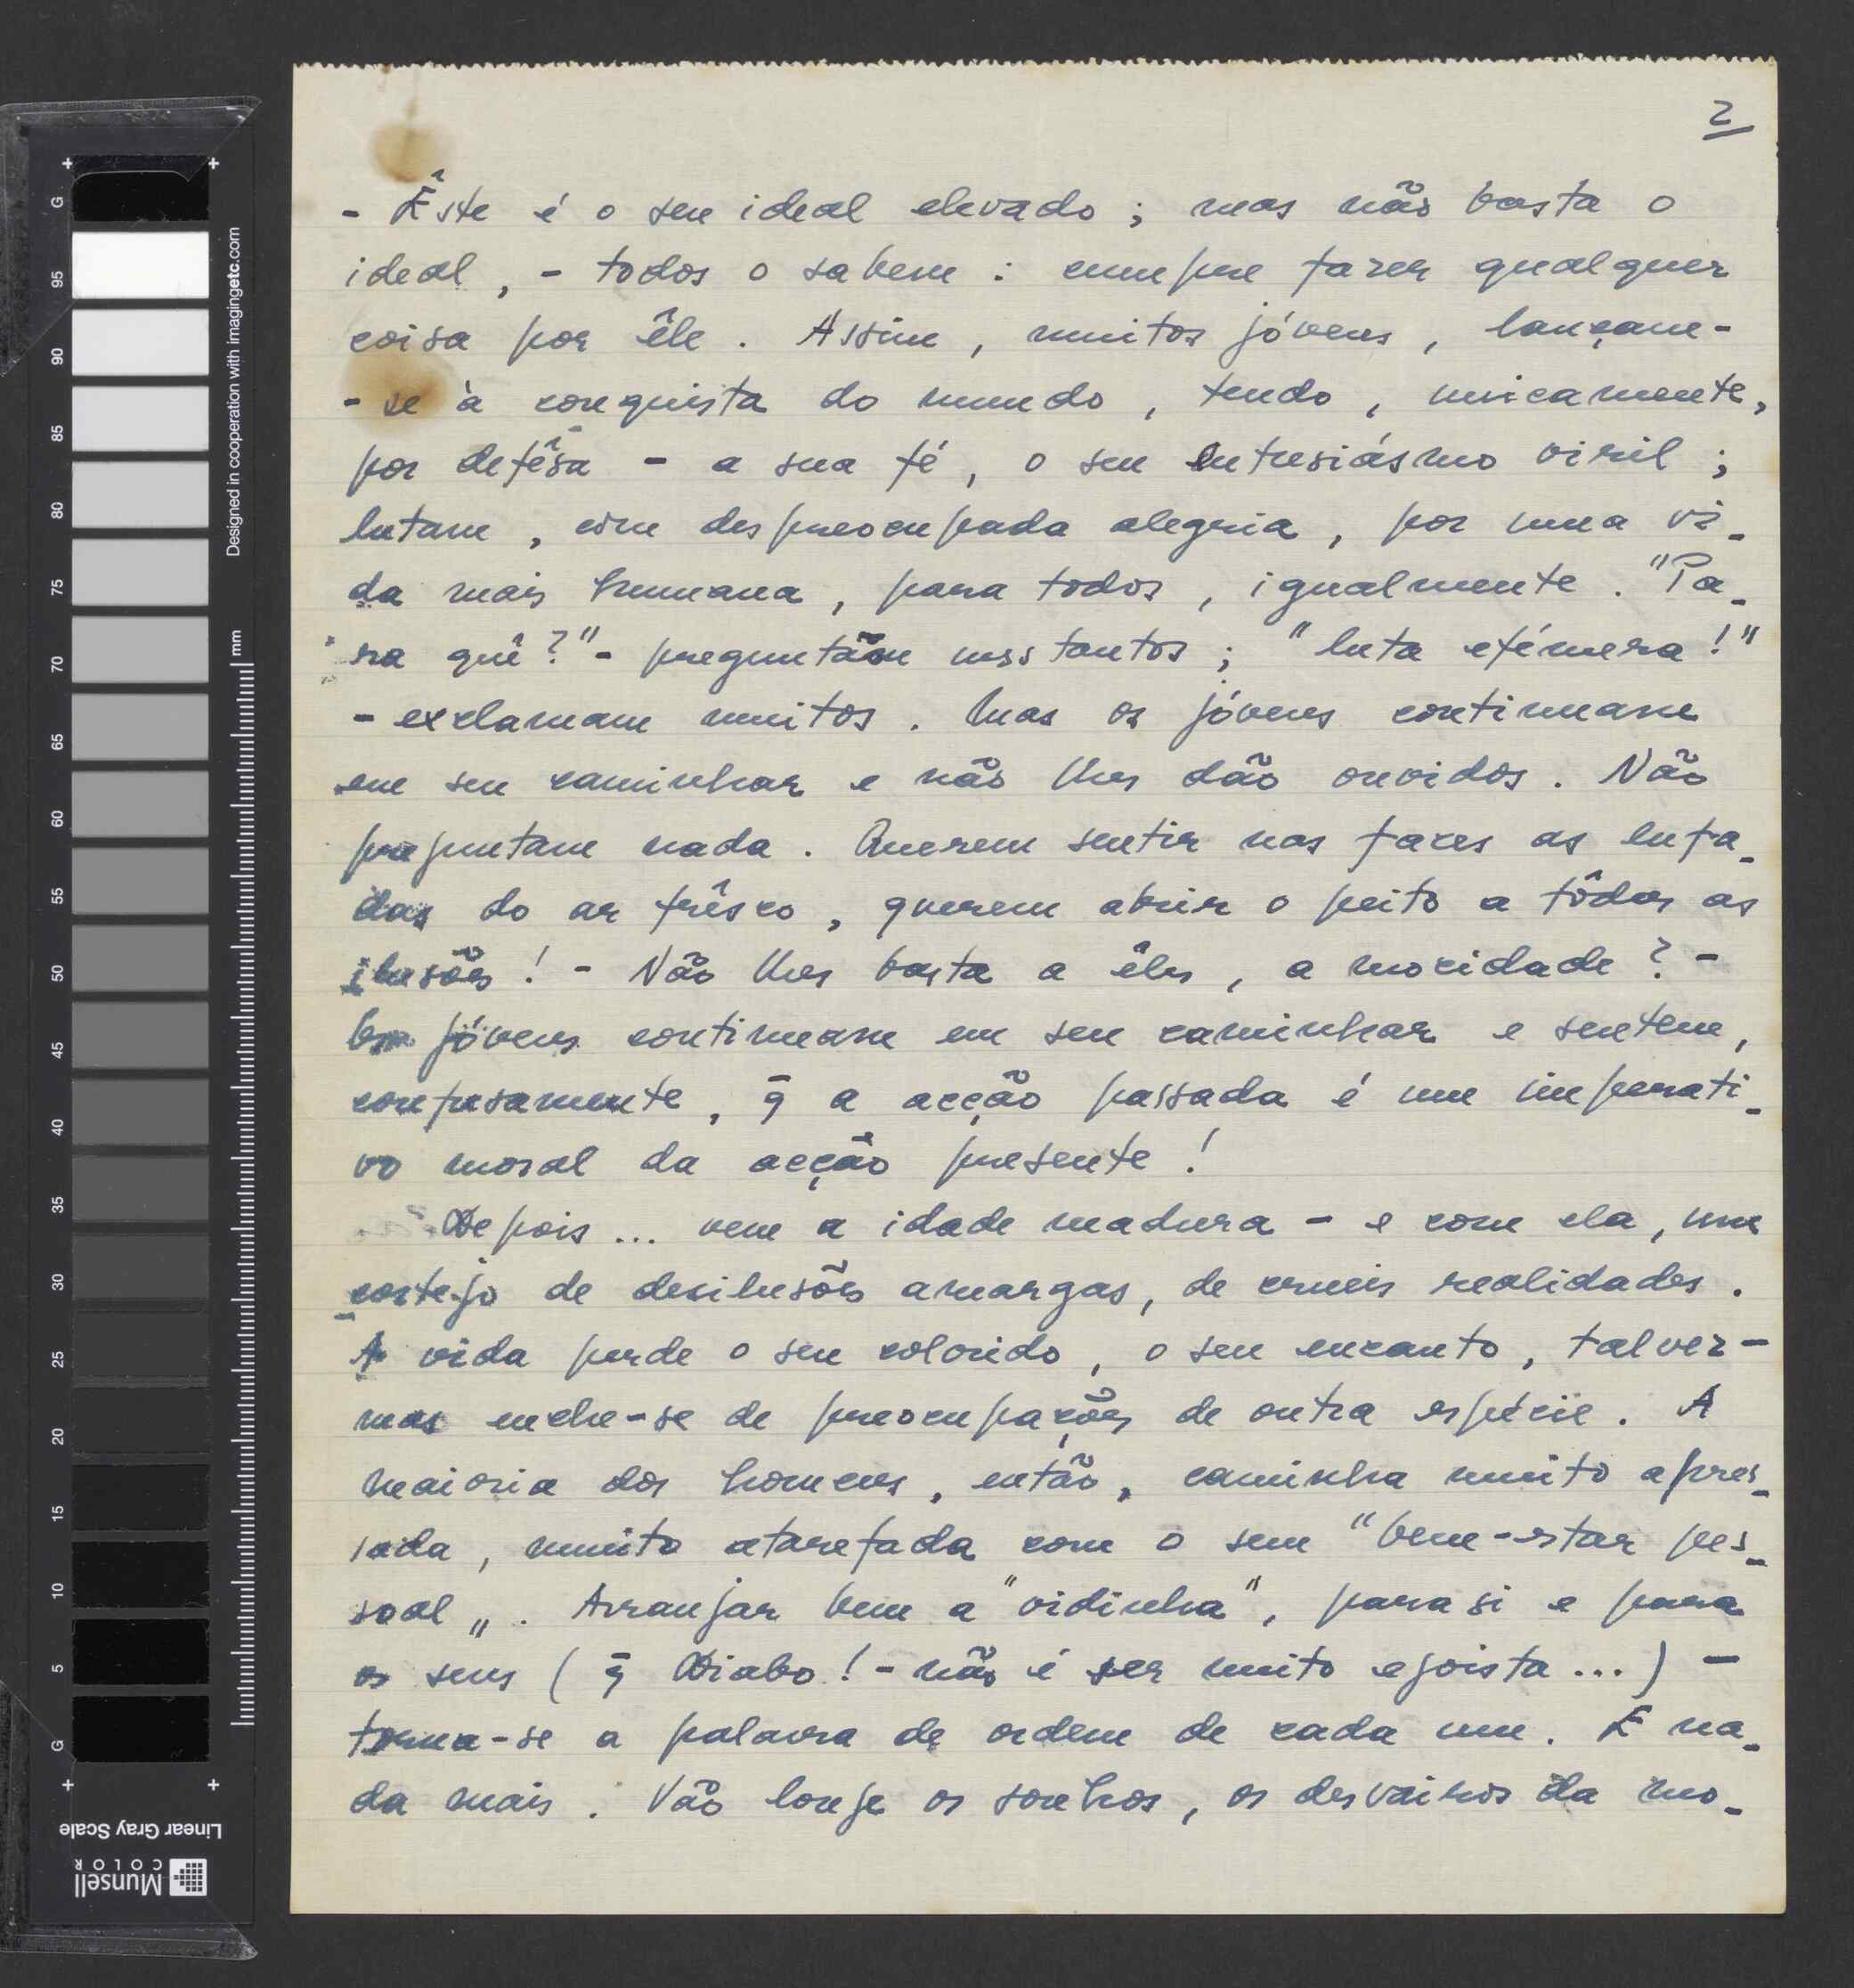 2
- Êste é o seu ideal elevado ; mas não basta o
ideal , - todos o sabem : cumpre fazer qualquer
coisa por êle . Assim , muitos jóvens , lançam-
- se à conquista do mundo , tendo , unicamente,
por defêsa - a sua fé , o seu entusiásmo viril ;
lutam , com despreocupada alegria , por uma vi-
da mais humana , para todos , igualmente . "Pa-
ra quê ?" - preguntam uns tantos ; "luta efémera !"
- exclamam muitos . Mas os jóvens continuam
em seu caminhar e não lhes dão ouvidos . Não
preguntam nada . Querem sentir nas faces as lufa-
das do ar frêsco , querem abrir o peito a tôdas as
ilusões ! - Não lhes basta a êles , a mocidade ? -
Os jóvens continuam em seu caminhar e sentem,
confusamente , q̄ a acção passada é um imperati-
vo moral da acção presente !
Depois ... vem a idade madura - e com ela, um
cortejo de desilusões amargas, de crueis realidades .
A vida perde o seu colorido , o seu encanto , talvez -
mas enche-se de preocupações de outra espécie . A
maioria dos homens , então , caminha muito apres-
sada , muito atarefada com o seu "bem-estar pes-
soal „ . Arranjar bem a "vidinha" , para si e para
os seus ( q̄ Diabo ! - não é ser muito egoista ... ) -
torna-se a palavra de ordem de cada um . E na-
da mais . Vão longe os sonhos , os desvairos da mo-
Designed in cooperation with imagingetc.com
mm
G
95
90
85
80
75
70
65
60
55
50
45
40
35
30
25
20
15
10
5
G
Linear Gray Scale
Munsell
COLOR